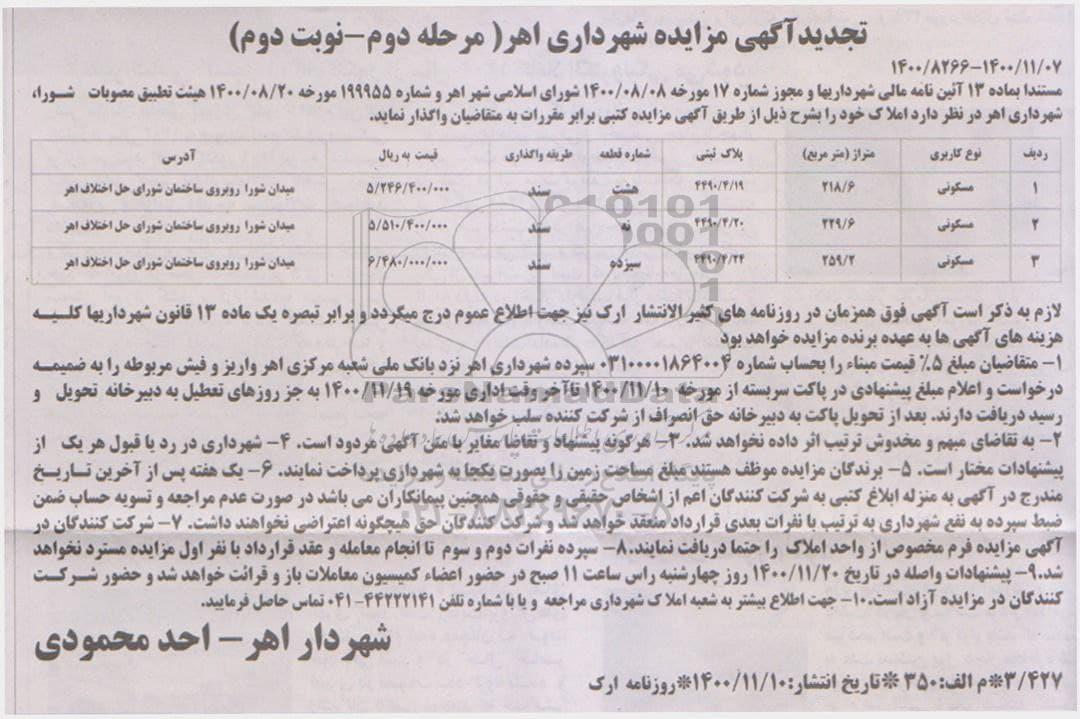 تجدیدآگهی مزایده شهرداری اهر( مرحله دوم-نوبت دوم)
۱۴۰۰/۸۲۶۶-۱۴۰۰/۱۱/۰۷
مستندا بماده ۱۳ آئین نامه مالی شهرداریها و مجوز شماره ۱۷ مورخه ۱۴۰۰/۰۸/۰۸ شورای اسلامی شهر اهر و شماره ۱۹۹۹۵۵ مورخه ۱۴۰۰/۰۸/۲۰ هیئت تطبیق مصوبات شـورا،
شهرداری اهر در نظر دارد املاک خود را بشرح ذیل از طریق آگهی مزایده کتبی برابر مقررات به متقاضیان واگذار نماید.
ردیف نوع کاربری متراژ (متر مربع) پلاک ثبتی شماره قطعه طریقه واگذاری قیمت به ریال آدرس
۱ مسکونی ۲۱۸/۶ ۴۴۹۰/۴/۱۹ هشت سند ۵/۲۴۶/۴۰۰/۰۰۰ میدان شورا روبروی ساختمان شورای حل اختلاف اهر
۲ مسکونی ۲۲۹/۶ ۴۴۹۰/۴/۲۰ نه سند ۵/۵۱۰/۴۰۰/۰۰۰ میدان شورا روبروی ساختمان شورای حل اختلاف اهر
۳ مسکونی ۲۵۹/۲ ۴۴۹۰/۴/۲۴ سیزده سند ۶/۴۸۰/۰۰۰/۰۰۰ میدان شورا روبروی ساختمان شورای حل اختلاف اهر
لازم به ذکر است آگهی فوق همزمان در روزنامه های کثیر الانتشار ارک نیز جهت اطلاع عموم درج میگردد و برابر تبصره یک ماده ۱۳ قانون شهرداریها کلـیـه
هزینه های آگهی ها به عهده برنده مزایده خواهد بود
۱- متقاضیان مبلغ ۵٪ قیمت مبناء را بحساب شماره ۰۳۱۰۰۰۰۱۸۶۴۰۰۴ سپرده شهرداری اهر نزد بانک ملی شعبه مرکزی اهر واریز و فیش مربوطه را به ضمیمـه
درخواست و اعلام مبلغ پیشنهادی در پاکت سربسته از مورخه ۱۴۰۰/۱۱/۱۰ تاآخروقت اداری مورخه ۱۴۰۰/۱۱/۱۹ به جز روزهای تعطیل به دبیرخانه تحویل و
رسید دریافت دارند. بعد از تحویل پاکت به دبیرخانه حق انصراف از شرکت کننده سلب خواهد شد.
۲- به تقاضای مبهم و مخدوش ترتیب اثر داده نخواهد شد. ۳- هرگونه پیشنهاد و تقاضا مغایر با متن آگهی مردود است. ۴- شهرداری در رد یا قبول هر یک از
پیشنهادات مختار است. ۵- برندگان مزایده موظف هستند مبلغ مساحت زمین را بصورت یکجا به شهرداری پرداخت نمایند. ۶- یک هفته پس از آخرین تـاریـخ
مندرج در آگهی به منزله ابلاغ کتبی به شرکت کنندگان اعم از اشخاص حقیقی و حقوقی همچنین پیمانکاران می باشد در صورت عدم مراجعه و تسویه حساب ضمن
ضبط سپرده به نفع شهرداری به ترتیب با نفرات بعدی قرارداد منعقد خواهد شد و شرکت کنندگان حق هیچگونه اعتراضی نخواهند داشت. ۷- شرکت کنندگان در
آگهی مزایده فرم مخصوص از واحد املاک را حتما دریافت نمایند.۸- سپرده نفرات دوم و سوم تا انجام معامله و عقد قرارداد با نفر اول مزایده مسترد نخواهد
شد.۹- پیشنهادات واصله در تاریخ ۱۴۰۰/۱۱/۲۰ روز چهارشنبه راس ساعت ۱۱ صبح در حضور اعضاء کمیسیون معاملات باز و قرائت خواهد شد و حضور شـرکـت
کنندگان در مزایده آزاد است.۱۰- جهت اطلاع بیشتر به شعبه املاک شهرداری مراجعه و یا با شماره تلفن ۴۴۲۲۲۱۴۱-۰۴۱ تماس حاصل فرمایید.
شهردار اهر - احد محمودی
۳/۴۲۷*م الف:۳۵۰ *تاریخ انتشار:۱۴۰۰/۱۱/۱۰*روزنامه ارک